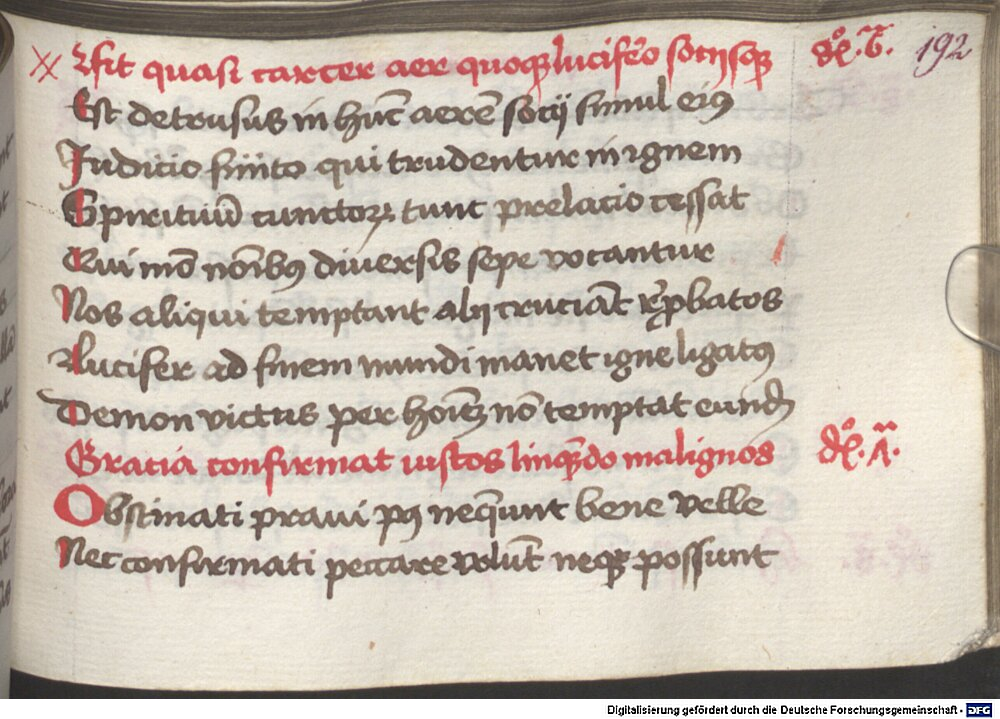 Fit quasi carcer aer quoqꝫ lucifero sociisqꝫ dꝰ. 6. 192
Est detrusus in hūc aerē socij simul eiꝰ
Judicio finito qui trudentur in ignem
Spirituū cunctoꝝ tunc prelacio cessat
Qui mō nōibꝰ diuersis sepe vocantur
Nos aliqui temptant alij cruciāt rep̄batos
Lucifer ad finem mundi manet igne ligatꝰ
Demon victus per hoīeꝫ nō temptat eundē
Gracia confirmat iustos linqn̄do malignos
Obstinati praui pꝰ neqeunt bene velle
Nec confirmati peccare volūt neqꝫ possunt
Digitalisierung gefördert durch die Deutsche Forschungsgemeinschaft - DFG